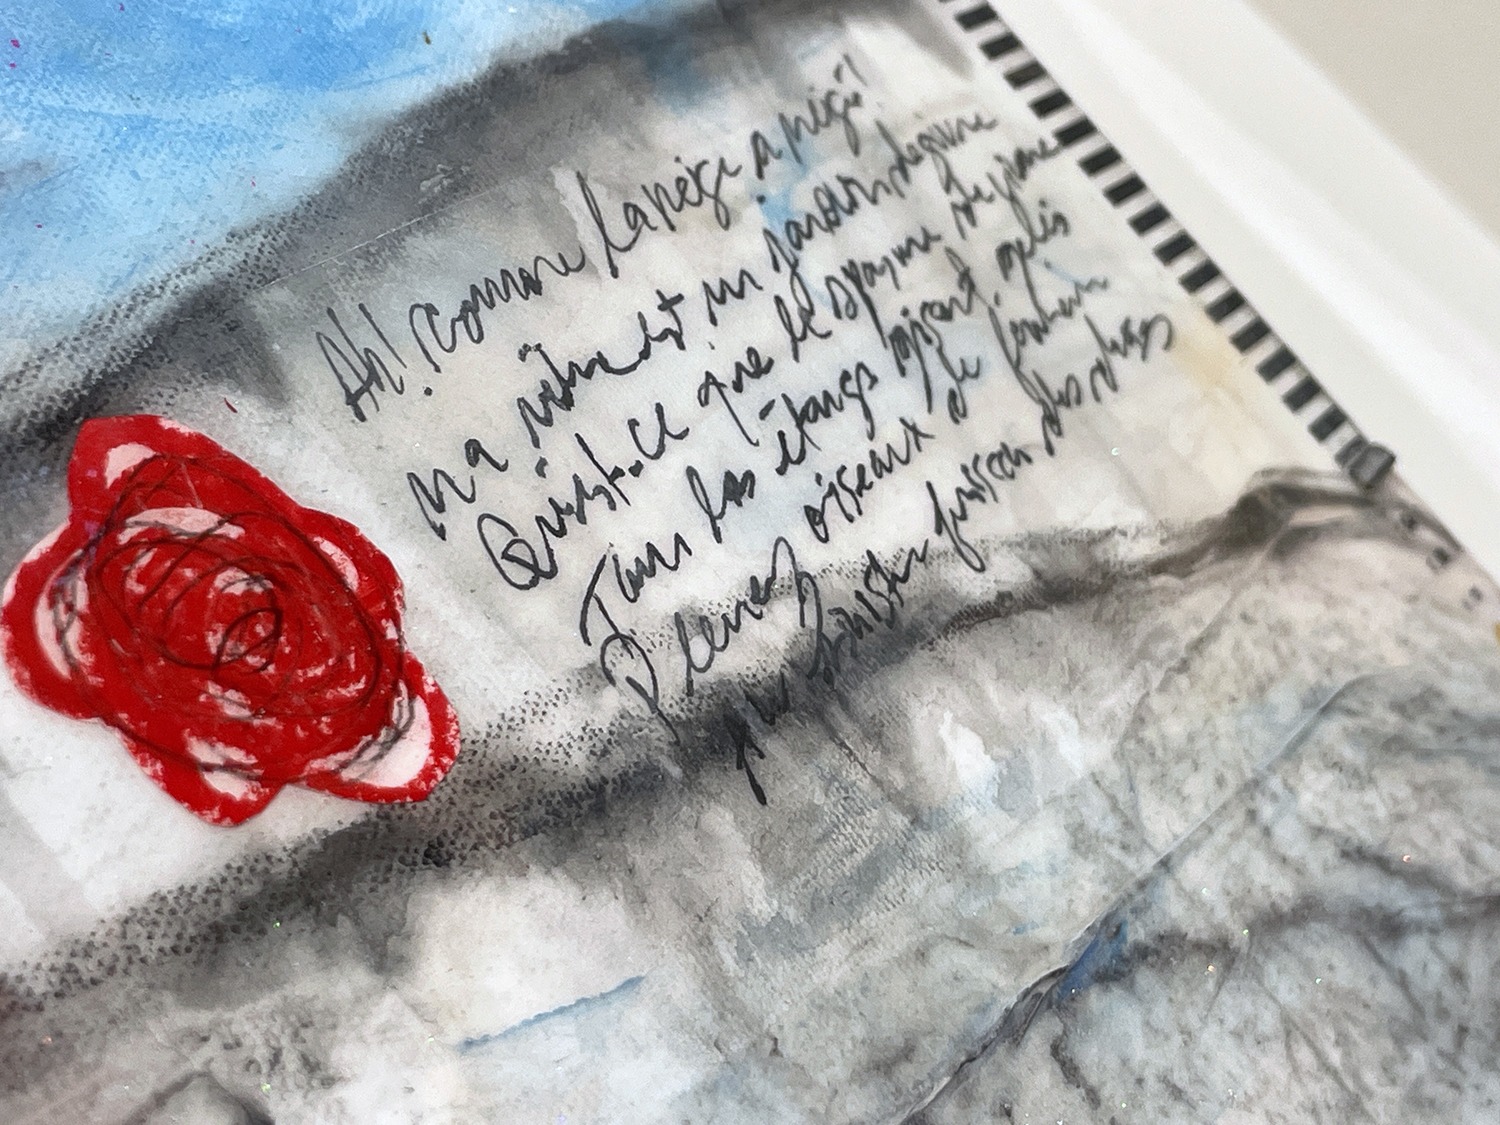 Ah! comme la neige a neigé!
Ma vitre est un jardin de givre
Qu'est-ce que le spasme de vivre
Tous les étangs gisent gelés
Pleurez oiseaux de février
au sinistre frisson des choses